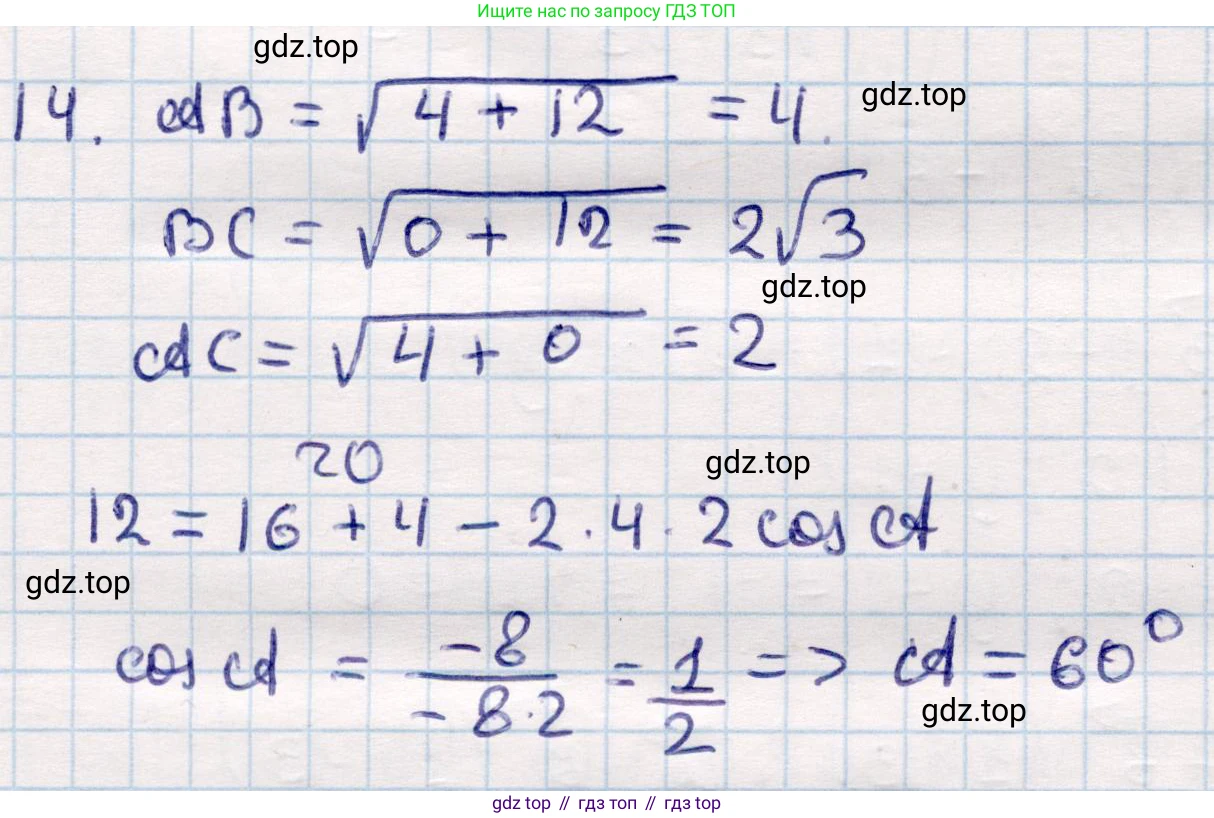 Ищите нас по запросу ГДЗ ТОП
gdz.top
14. AB = √(4 + 12) = 4.
gdz.top
BC = √(0 + 12) = 2√3
gdz.top
AC = √(4 + 0) = 2
20
gdz.top
12 = 16 + 4 - 2 · 4 · 2 cos A
gdz.top
cos A = -8/(-8·2) = 1/2 => A = 60°
gdz.top
gdz top // гдз топ // гдз top